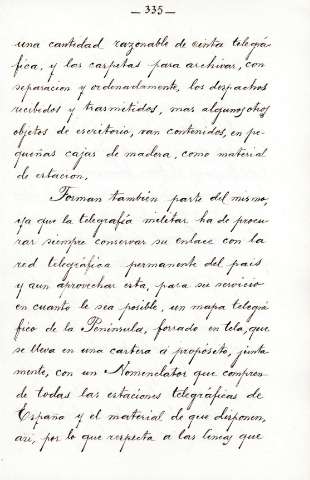 — 335 —
una cantidad razonable de cinta telegrá-
fica, y las carpetas para archivar, con
separacion y ordenadamente, los despachos
recibidos y trasmitidos, mas algunos otros
objetos de escritorio, van contenidos, en pe-
queñas cajas de madera, como material
de estacion.
Forman tambien parte del mismo,
ya que la telegrafía militar ha de procu-
rar siempre conservar su enlace con la
red telegráfica permanente del país
y aun aprovechar esta, para su servicio
en cuanto le sea posible, un mapa telegrá-
fico de la Península, forrado en tela, que
se lleva en una cartera á propósito, junta-
mente, con un Nomenclator que compren-
de todas las estaciones telegráficas de
España y el material de que disponen,
asi, por lo que respecta a las lineas que